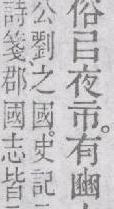 俗㠯夜市。有豳
公劉之國。史記
詩箋郡國志皆